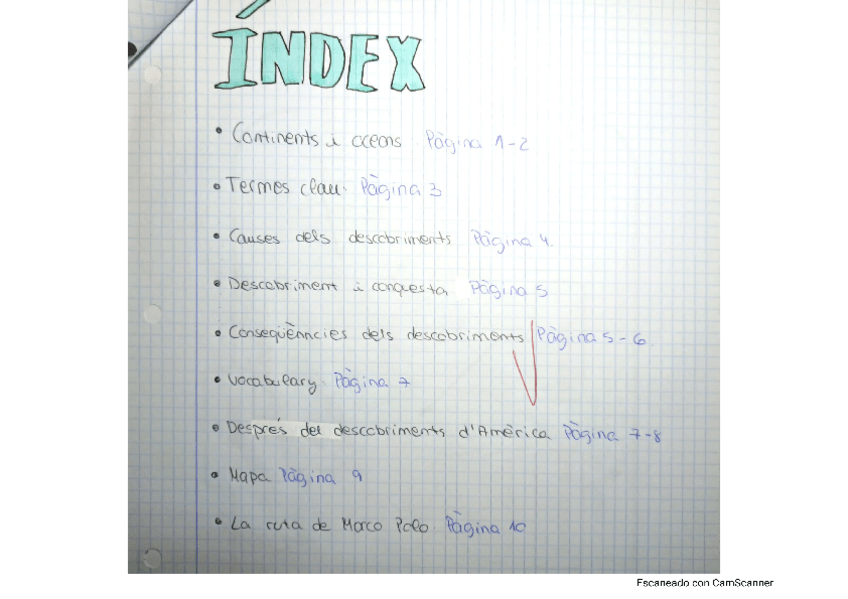 ÍNDEX
• Continents i oceans. Pàgina 1-2
• Termes clau. Pàgina 3
• Causes dels descobriments Pàgina 4.
• Descobriment i conquesta Pàgina 5
• Conseqüènncies dels descobriments Pàgina 5-6
• Vocabulary. Pàgina 7
• Després del descobriments d'Amèrica Pàgina 7-8
• Mapa Pàgina 9
• La ruta de Marco Polo. Pàgina 10
Escaneado con CamScanner